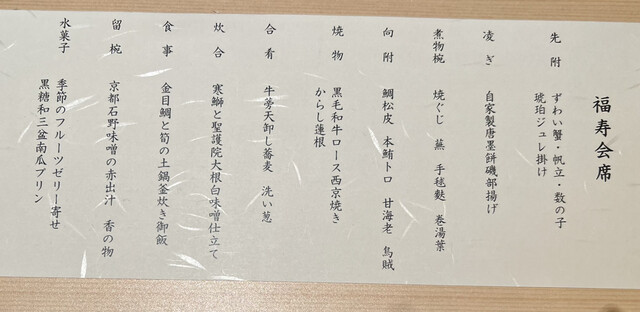 福寿会席
先附 ずわい蟹・帆立・数の子
琥珀ジュレ掛け
凌ぎ 自家製唐墨餅磯部揚げ
煮物椀 焼ぐじ 蕪 手毬麩 巻湯葉
向附 鯛松皮 本鮪トロ 甘海老 烏賊
焼物 黒毛和牛ロース西京焼き
からし蓮根
合肴 牛蒡天卸し蕎麦 洗い葱
炊合 寒鰤と聖護院大根白味噌仕立て
食事 金目鯛と筍の土鍋釜炊き御飯
留椀 京都石野味噌の赤出汁 香の物
水菓子 季節のフルーツゼリー寄せ
黒糖和三盆南瓜プリン